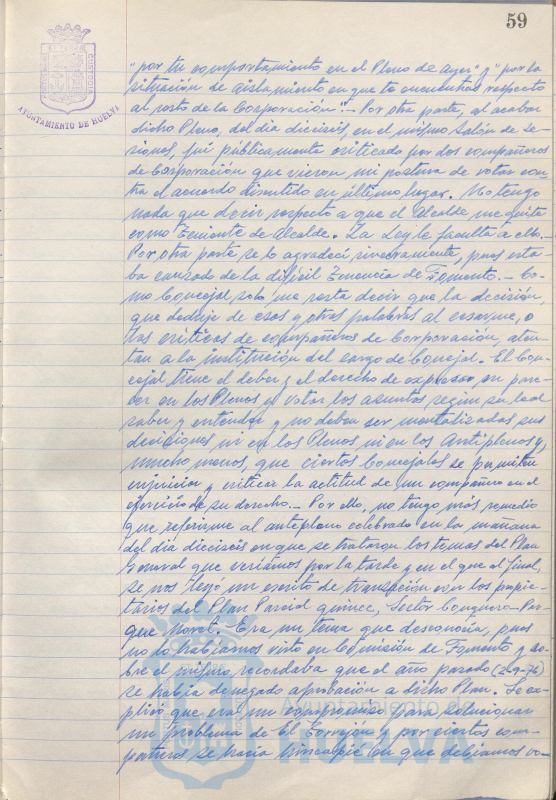 59
AYUNTAMIENTO DE HUELVA
"por tu comportamiento en el Pleno de Ayer" y "por la
situación de aislamiento en que te encuentras respecto
al resto de la Corporación".- Por otra parte, al acabar
dicho Pleno, del día dieciséis, en el mismo Salón de Se-
siones, fui públicamente criticado por dos compañeros
de Corporación que vieron mi postura de votar con-
tra el acuerdo discutido en último lugar. No tengo
nada que decir respecto a que el Alcalde me quite
como Teniente de Alcalde. La Ley le faculta a ello.
Por otra parte se lo agradecí sinceramente, pues esta-
ba cansado de la difícil Tenencia de Fomento.- Co-
mo Concejal solo me resta decir que la decisión,
que deduje de esas y otras palabras al cesarme, o
las críticas de compañeros de Corporación, aten-
tan a la institución del cargo de Concejal. El Con-
cejal tiene el deber y el derecho de expresar su pare-
cer en los Plenos y votar los asuntos según su leal
saber y entender y no deben ser mentalizadas sus
decisiones ni en los Plenos ni en los Antiplenos y,
mucho menos, que ciertos Concejales se permitan
enjuiciar y criticar la actitud de un compañero en el
ejercicio de su derecho.- Por ello, no tengo más remedio
que referirme al antipleno celebrado en la mañana
del día dieciséis en que se trataron los temas del Plan
General que veríamos por la tarde y en el que al final,
se nos leyó un escrito de transacción con los propie-
tarios del Plan Parcial quince, Sector Conquero-Par-
que Moret. Era un tema que desconocía, pues
no lo habíamos visto en Comisión de Fomento y so-
bre el mismo recordaba que el año pasado (2-9-76)
se había denegado aprobación a dicho Plan. Se ex-
plicó que era un compromiso para solucionar
un problema de El Torrejón y por ciertos com-
pañeros se hacía hincapié en que debíamos vo-
Ayuntamiento de
HUELVA